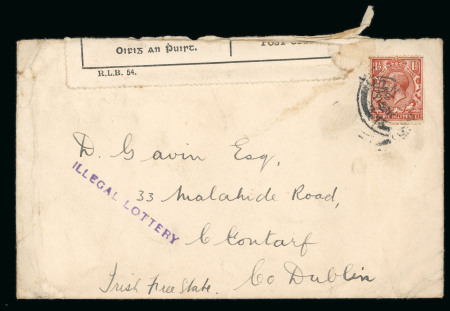 Oifig an Puirt.
R.L.B. 54.
D. Gavin Esq,
33 Malahide Road,
Clontarf
Co Dublin
Irish Free State.
ILLEGAL LOTTERY